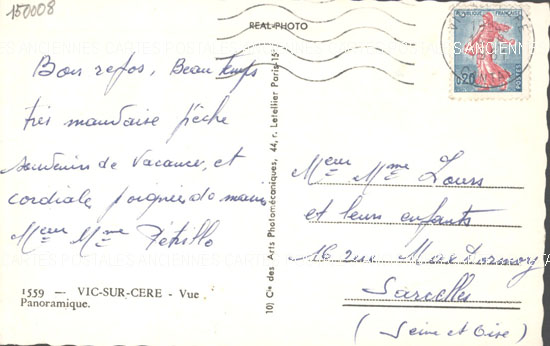 150008
REAL-PHOTO
Bon repos, Beau temps
très mauvaise pêche
souvenirs de Vacances, et
cordiale poignée de mains
Meur Mme
1559 — VIC-SUR-CERE - Vue
Panoramique.
10) Cie des Arts Photomécaniques, 44, r. Letellier Paris-15e
REPUBLIQUE FRANÇAISE
0,20
POSTES
Meur Mme Louis
et leurs enfants
16 rue Marx Dormoy
Sarcelles
(Seine et Oise)
ANCIENNES CARTES POSTALES